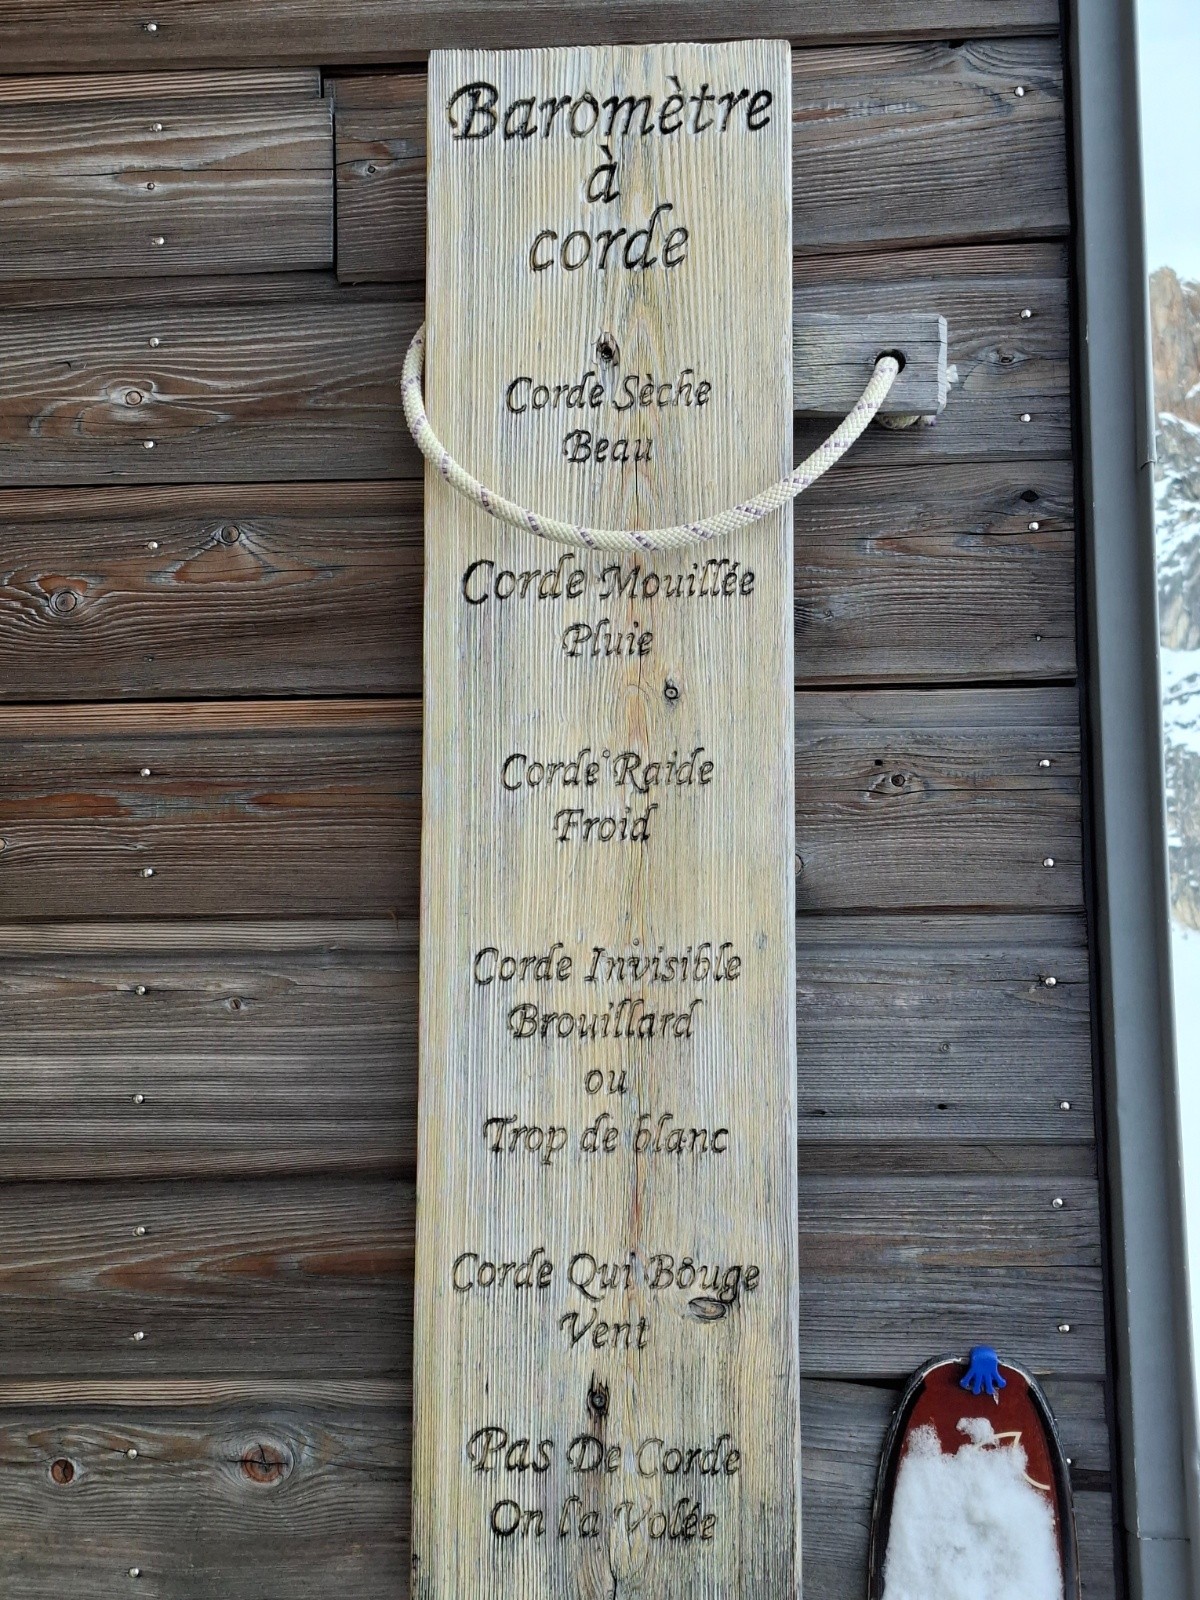 Baromètre
à
corde
Corde Sèche
Beau
Corde Mouillée
Pluie
Corde Raide
Froid
Corde Invisible
Brouillard
ou
Trop de blanc
Corde Qui Bouge
Vent
Pas De Corde
On l'a Volée